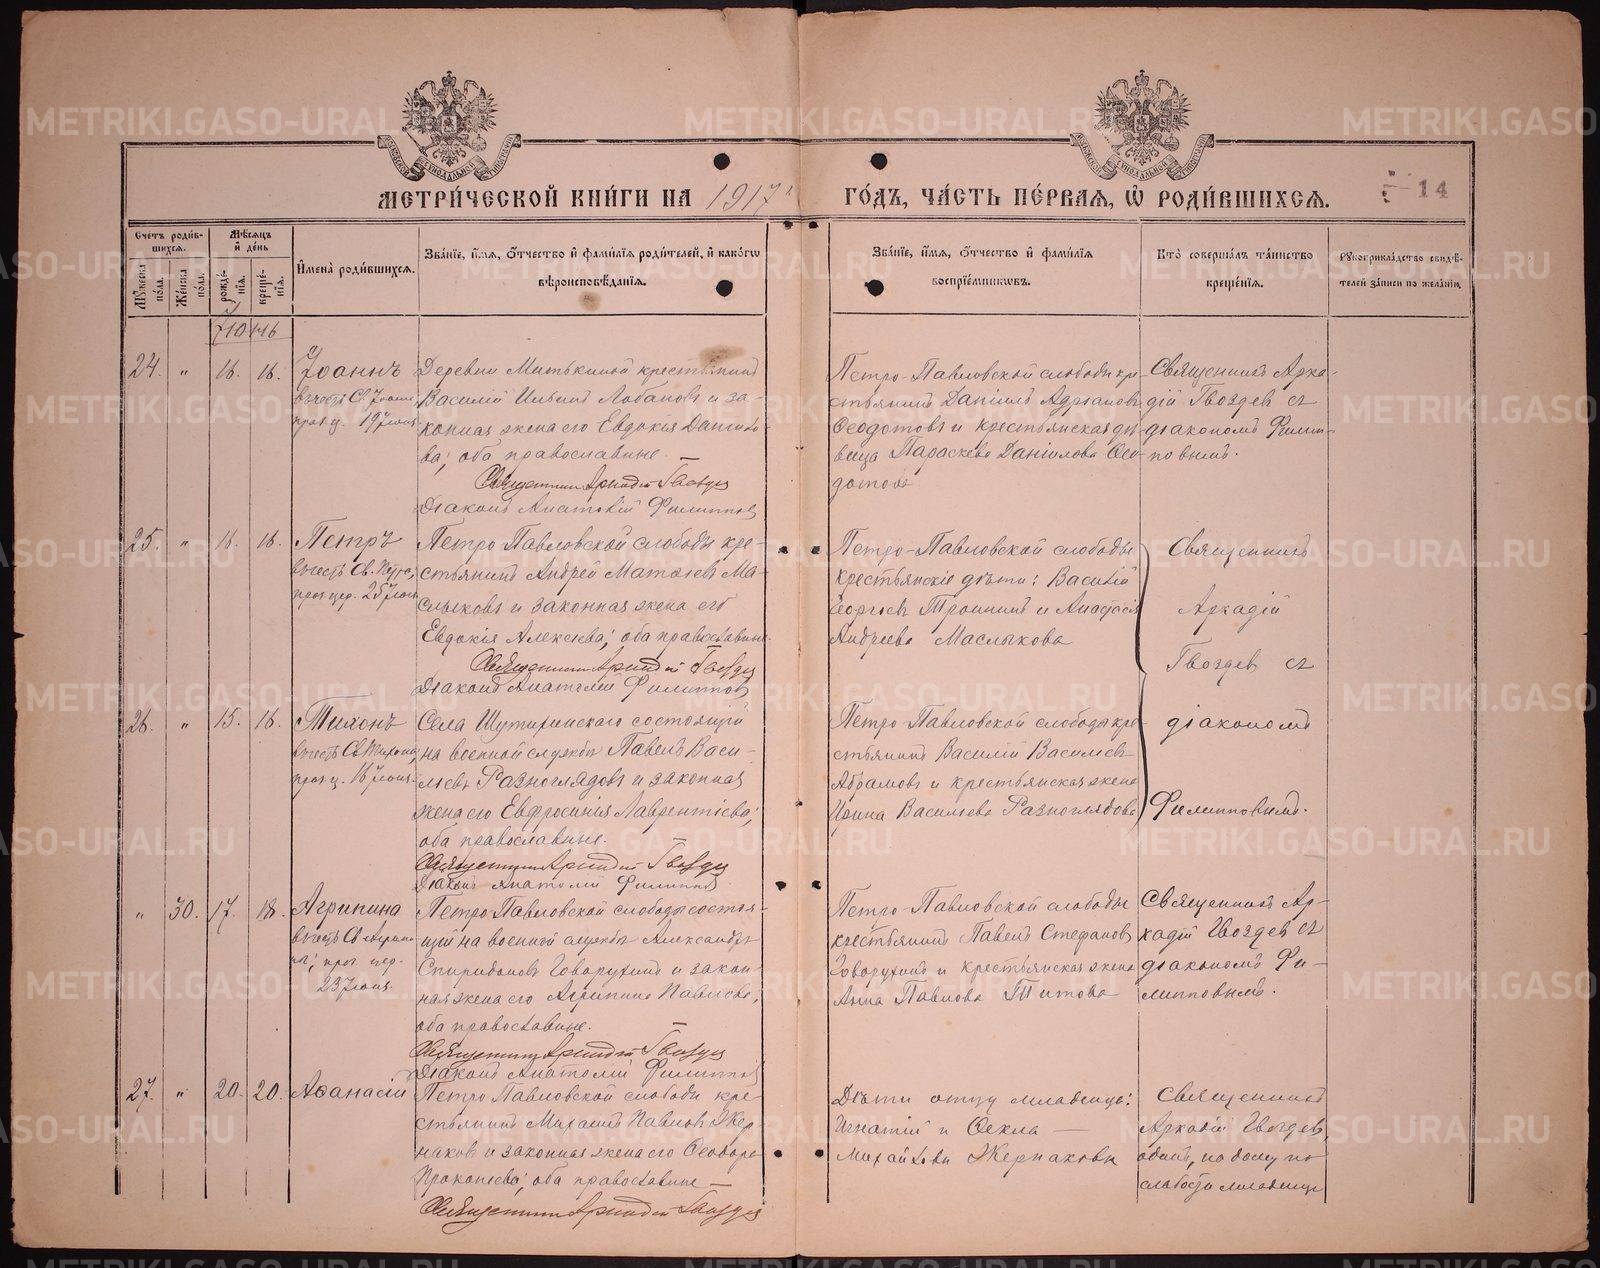 МЕТРИ́ЧЕСКОЙ КНИ́ГИ НА 1917
ГО́ДЪ, ЧА́СТЬ ПЕ́РВАѦ, Ѡ РОДИ́ВШИХСѦ.
14
Счетъ роди́вшихсѧ.
Му́жеска по́ла.
Же́нска по́ла.
Мѣ́сѧцъ и де́нь
рожде́нїѧ.
креще́нїѧ.
Имена̀ роди́вшихсѧ.
Зва́нїе, и́мѧ, о́тчество и фами́лїѧ роди́телей, и како́гѡ
вѣроисповѣ́данїѧ.
Зва́нїе, и́мѧ, о́тчество и фами́лїѧ
воспрїе́мникѡвъ.
Кто̀ соверша́лъ та́инство
креще́нїѧ.
Рꙋкоприкла́дство свидѣ́телей за́писи по жела́нїю.
24. „ 16. 16. Іоаннъ
въ честь Св. Іоанна
праз. ц. 19 Іюня
Деревни Митькиной крестьянинъ
Василій Ильинъ Лобановъ и за-
конная жена его Евдокія Данило-
ва; оба православные.
Священникъ Аркадій Гвоздевъ
Діаконъ Анатолій Филипповъ
Петро-Павловской слободы кре-
стьянинъ Даніилъ Адріановъ
Ѳеодотовъ и крестьянская дѣ-
вица Параскева Даніилова Ѳео-
дотова
Священникъ Арка-
дій Гвоздевъ съ
діакономъ Филип-
повымъ.
25. „ 16. 16. Петръ
въ честь Св. Петра,
праз. цер. 25 Іюня
Петро Павловской слободы кре-
стьянинъ Андрей Матѳіевъ Ма-
слыковъ и законная жена его
Евдокія Алексѣева; оба православные.
Священникъ Аркадій Гвоздевъ
Діаконъ Анатолій Филипповъ
Петро-Павловской слободы
крестьянскіе дѣти: Василій
Георгіевъ Тронинъ и Анастасія
Андреева Маслыкова
Священникъ
Аркадій
Гвоздев съ
діакономъ
Филипповымъ.
26. „ 15. 16. Тихонъ
въ честь Св. Тихона,
праз. ц. 16 Іюня.
Села Шутихинскаго состоящій
на военной службѣ Павелъ Васи-
льевъ Разноглядовъ и законная
жена его Евфросинія Лаврентіева;
оба православные.
Священникъ Аркадій Гвоздевъ
Діаконъ Анатолій Филипповъ
Петро-Павловской слободы кре-
стьянинъ Василій Васильевъ
Абрамовъ и крестьянская жена
Ирина Васильева Разноглядова
„ 30. 17. 18. Агрипина
въ честь Св. Агрипи-
ны; праз. цер.
23 Іюня.
Петро Павловской слободы состоя-
щій на военной службѣ Александръ
Спиридоновъ Говорухинъ и закон-
ная жена его Агрипина Павлова;
оба православные.
Священникъ Аркадій Гвоздевъ
Діаконъ Анатолій Филипповъ
Петро-Павловской слободы
крестьянинъ Павелъ Стефановъ
Говорухинъ и крестьянская жена
Анна Павлова Титова
Священникъ Ар-
кадій Гвоздев съ
діакономъ Фи-
липповымъ.
27. „ 20. 20. Аѳанасій
Петро Павловской слободы кре-
стьянинъ Михаилъ Павловъ Жер-
наков и законная жена его Ѳеодора
Прокопіева; оба православные
Священникъ Аркадій Гвоздевъ
Дѣти отцу младенца:
Игнатій и Ѳекла
Михайловы Жернаковы
Священникъ
Аркадій Гвоздев,
одинъ, на дому по
слабости младенца
METRIKI.GASO-URAL.RU